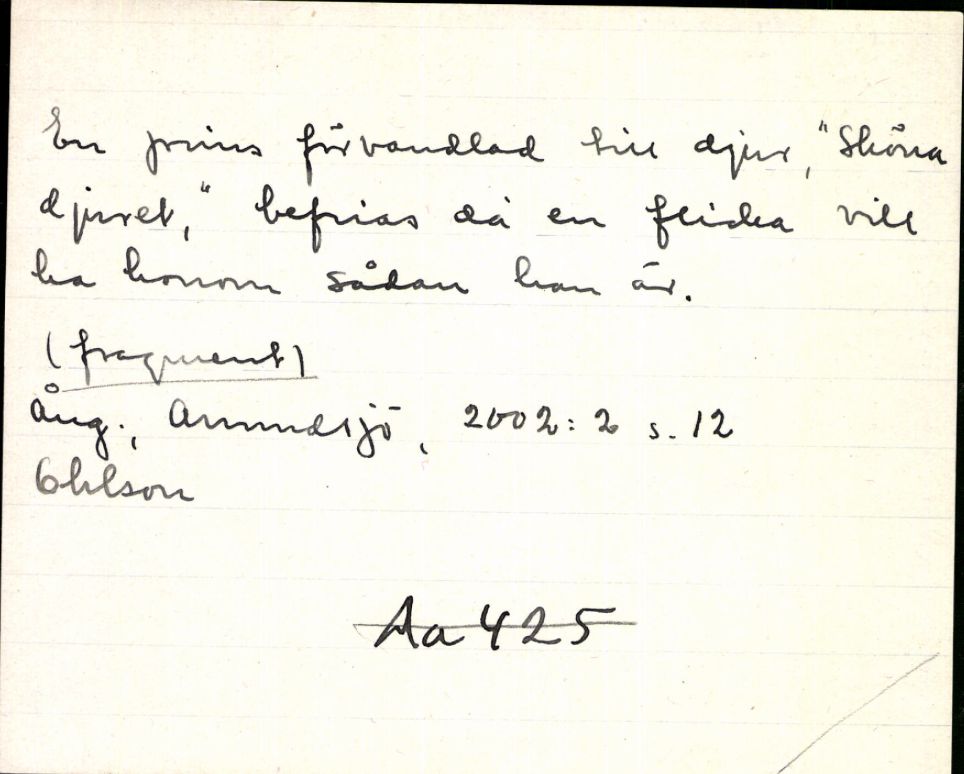 En prins förvandlad till djur, "Sköna
djuret," befrias då en flicka vill
ha honom sådan han är.
(fragment)
Ång., Anundsjö, 2002:2 s. 12
Ohlson
Aa 425